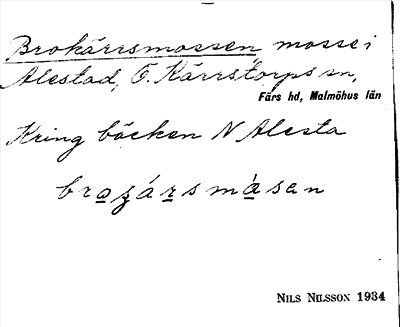 Brokärrsmossen mosse i
Alestad, Ö. Kärrstorps sn,
Färs hd, Malmöhus län
Kring bäcken N Alesta
brazársmàsen
NILS NILSSON 1934